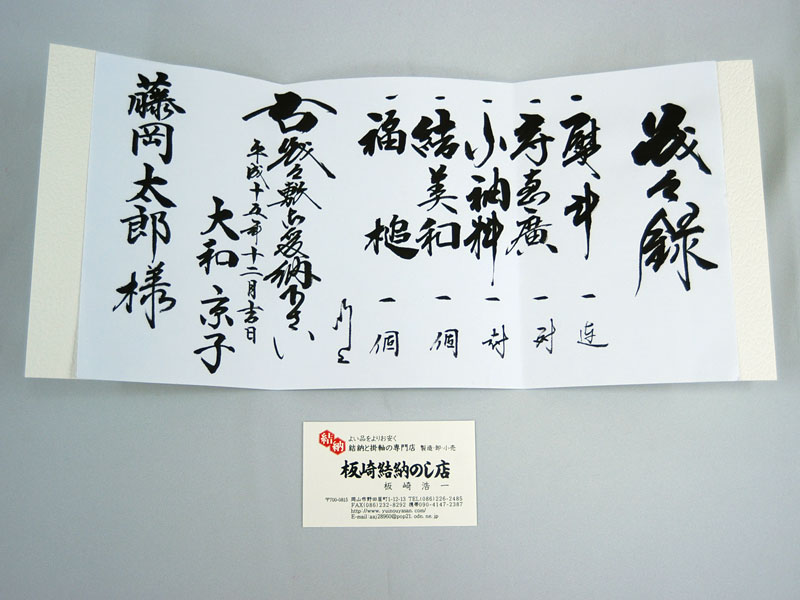 戔々録
一 熨斗 一連
一 寿恵廣 一対
一 小袖料 一封
一 結美和 一個
一 福槌 一個
以上
右幾久敷御受納下さい
平成十五年十二月吉日
大和京子
藤岡太郎様
結納
よい品をよりお安く
結納と掛軸の専門店 製造・卸・小売
板崎結納のし店
板崎浩一
〒700-0815 岡山市野田屋町1-12-13 TEL(086)226-2485
FAX(086)232-8292 携帯090-4147-2387
http://www.yuinouyasan.com/
E-mail:aaj28960@pop21.odn.ne.jp